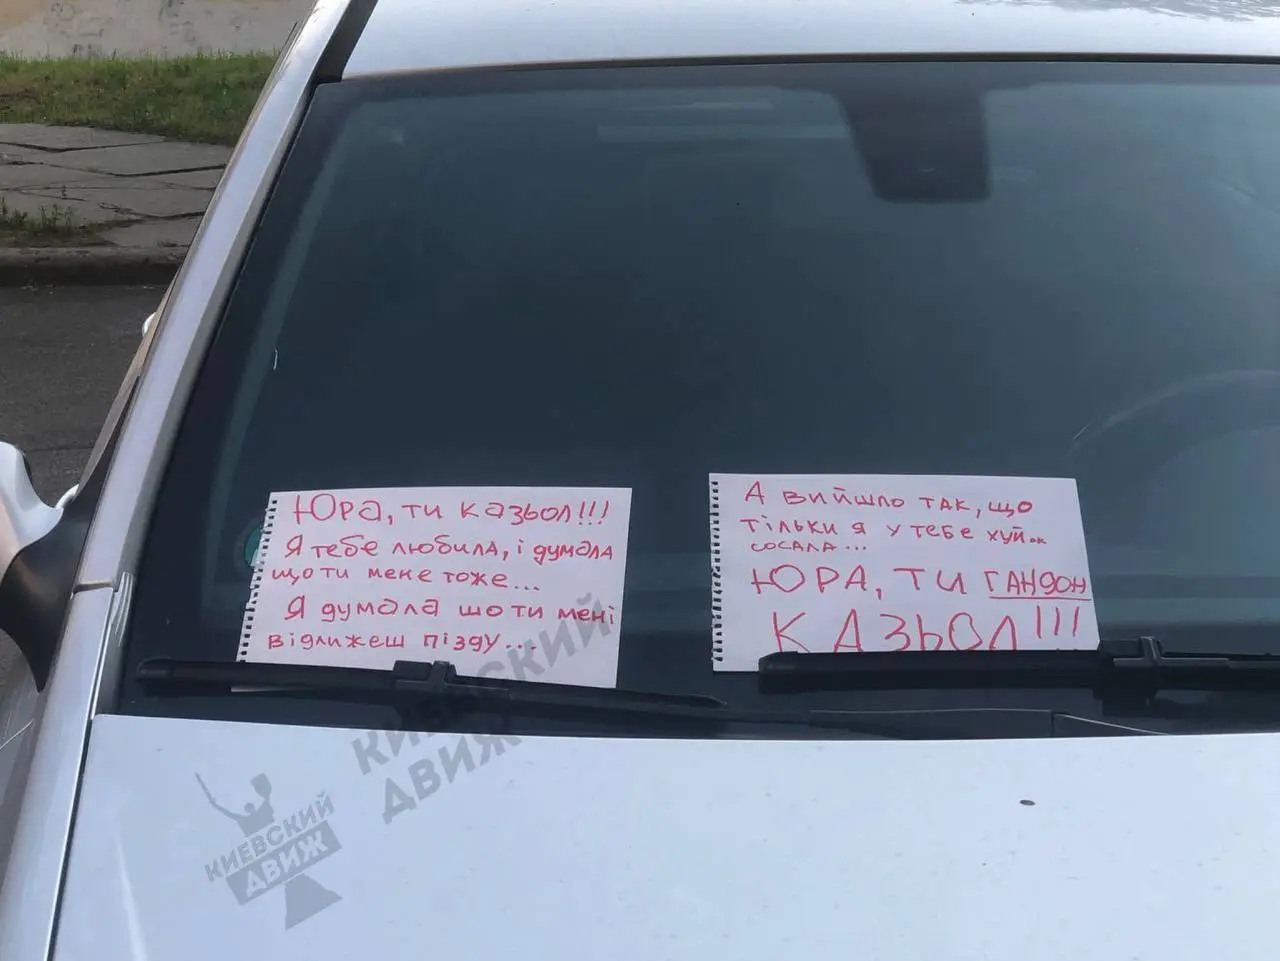 Юра, ти казьол!!!
Я тебе любила, і думала
що ти мене тоже...
Я думала шо ти мені
відлижеш пізду...
А вийшло так, що
тільки я у тебе хуй ок
сосала...
ЮРА, ТИ ГАНДОН
КАЗЬОЛ!!!
КИЕВСКИЙ
ДВИЖ
КИЕВСКИЙ
ДВИЖ